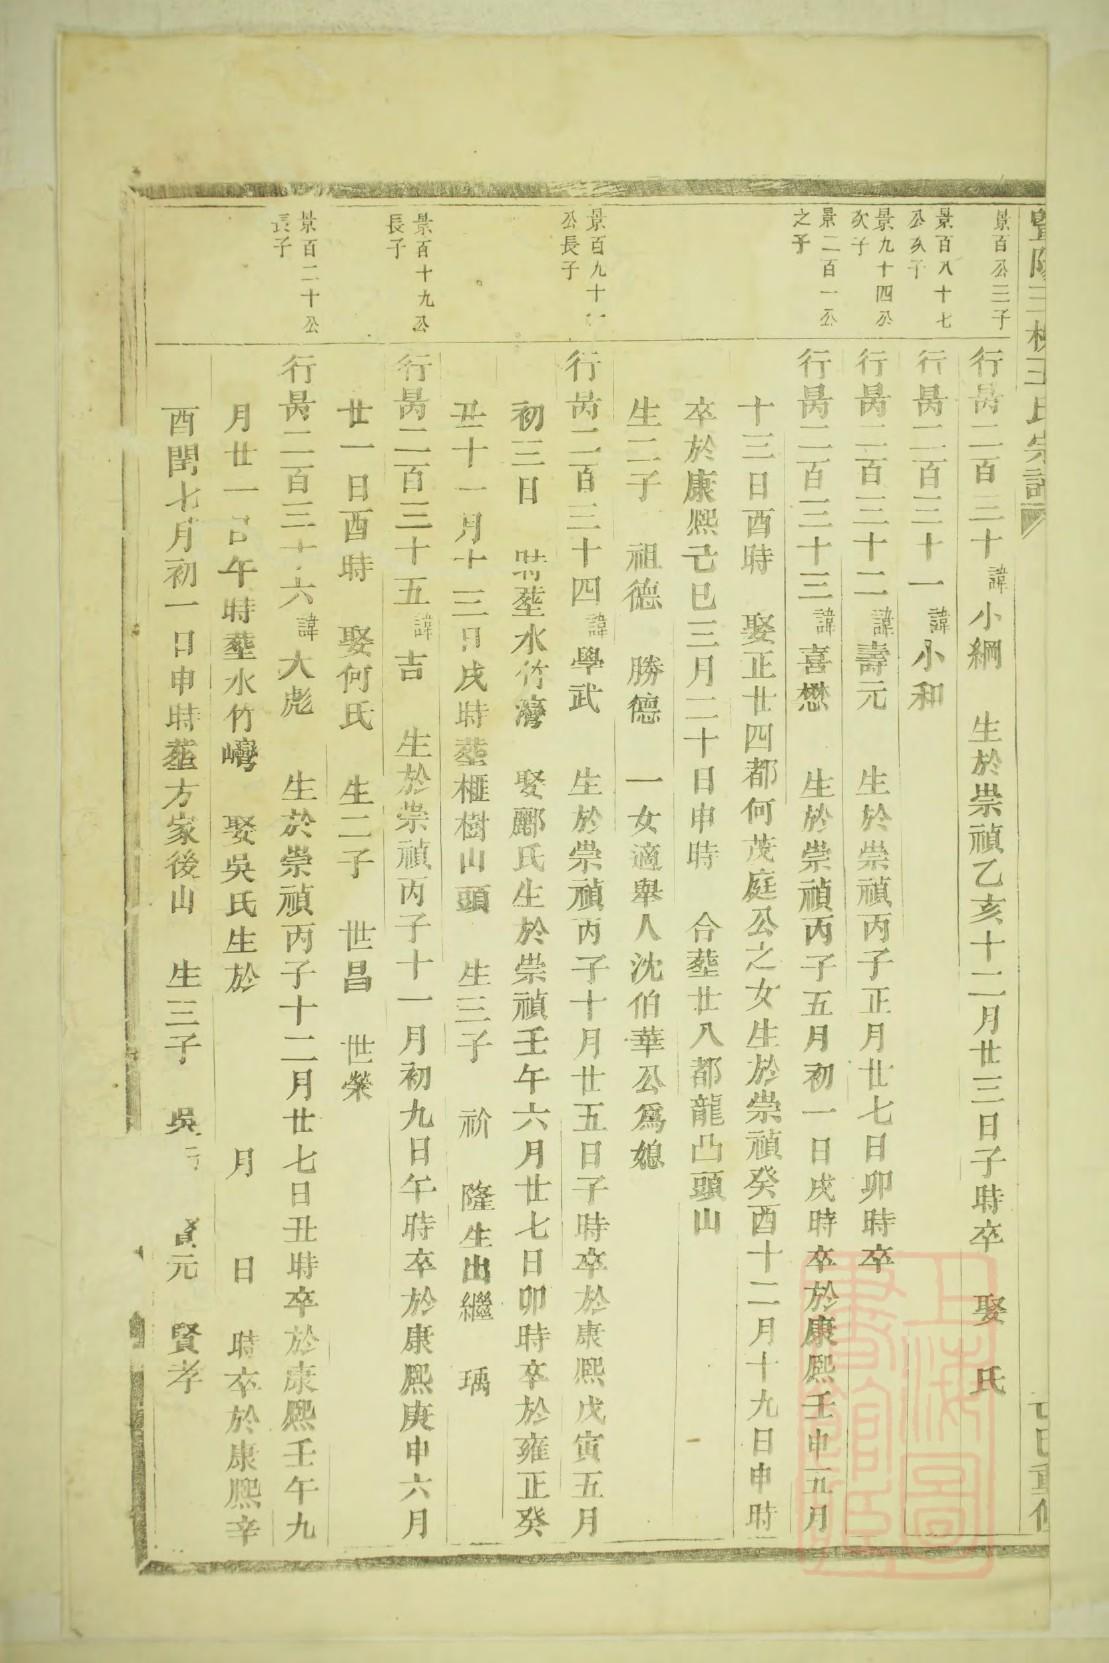 暨陽三橋王氏宗譜
景百公三子
行昺二百三十諱小綱 生於崇禎乙亥十二月廿三日子時卒 娶 氏
景百八十七公次子
行昺二百三十一諱小和
景九十四公次子
行昺二百三十二諱壽元 生於崇禎丙子正月廿七日卯時卒
景二百一公之子
行昺二百三十三諱喜懋 生於崇禎丙子五月初一日戌時卒於康熙壬申五月
十三日酉時 娶正廿四都何茂庭公之女生於崇禎癸酉十二月十九日申時
卒於康熙己巳三月二十日申時 合塟廿八都龍凸頭山
生二子 祖德 勝德 一女適舉人沈伯華公爲媳
景百九十一公長子
行昺二百三十四諱學武 生於崇禎丙子十月廿五日子時卒於康熙戊寅五月
初三日 時塟水竹灣 娶酈氏生於崇禎壬午六月廿七日卯時卒於雍正癸
丑十一月十三日戌時塟榧樹山頭 生三子 祄 隆生出繼 瑀
景百十九公長子
行昺二百三十五諱吉 生於崇禎丙子十一月初九日午時卒於康熙庚申六月
廿一日酉時 娶何氏 生二子 世昌 世榮
景百二十公長子
行昺二百三十六諱大彪 生於崇禎丙子十二月廿七日丑時卒於康熙壬午九
月廿一日午時塟水竹𡿖 娶吳氏生於 月 日 時卒於康熙辛
酉閏七月初一日申時塟方家後山 生三子 吳 元 賢孝
重修
上海圖書館藏